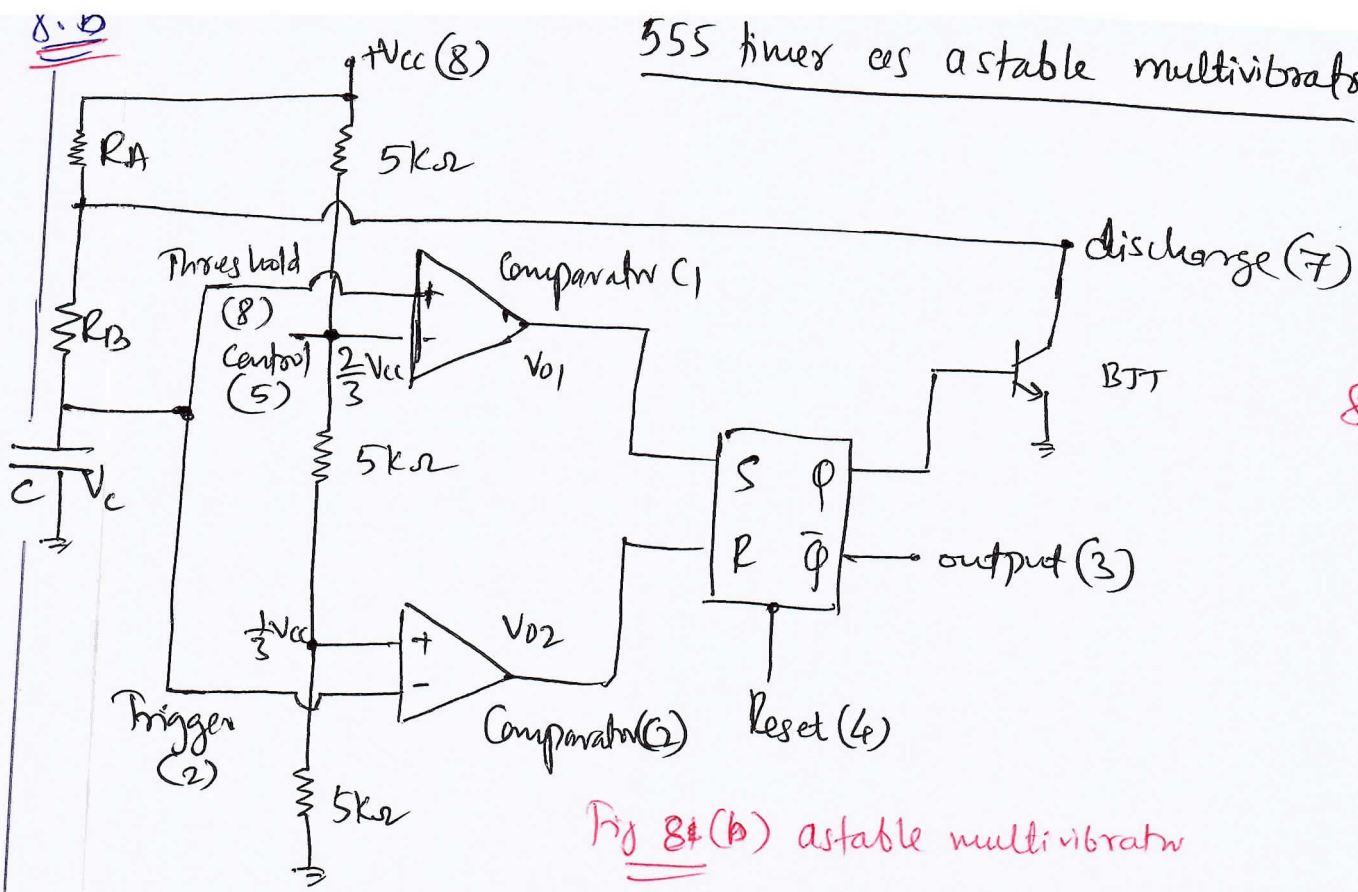 8.b
555 timer as astable multivibrator
+Vcc (8)
RA
5KΩ
discharge (7)
Threshold
(8)
Comparator C1
+
-
RB
Control
(5)
2/3 Vcc
V01
BJT
8
C
Vc
5KΩ
S Q
R Q̄
output (3)
1/3 Vcc
+
-
V02
Trigger
(2)
Comparator (2)
Reset (4)
5KΩ
Fig 8(b) astable multivibrator